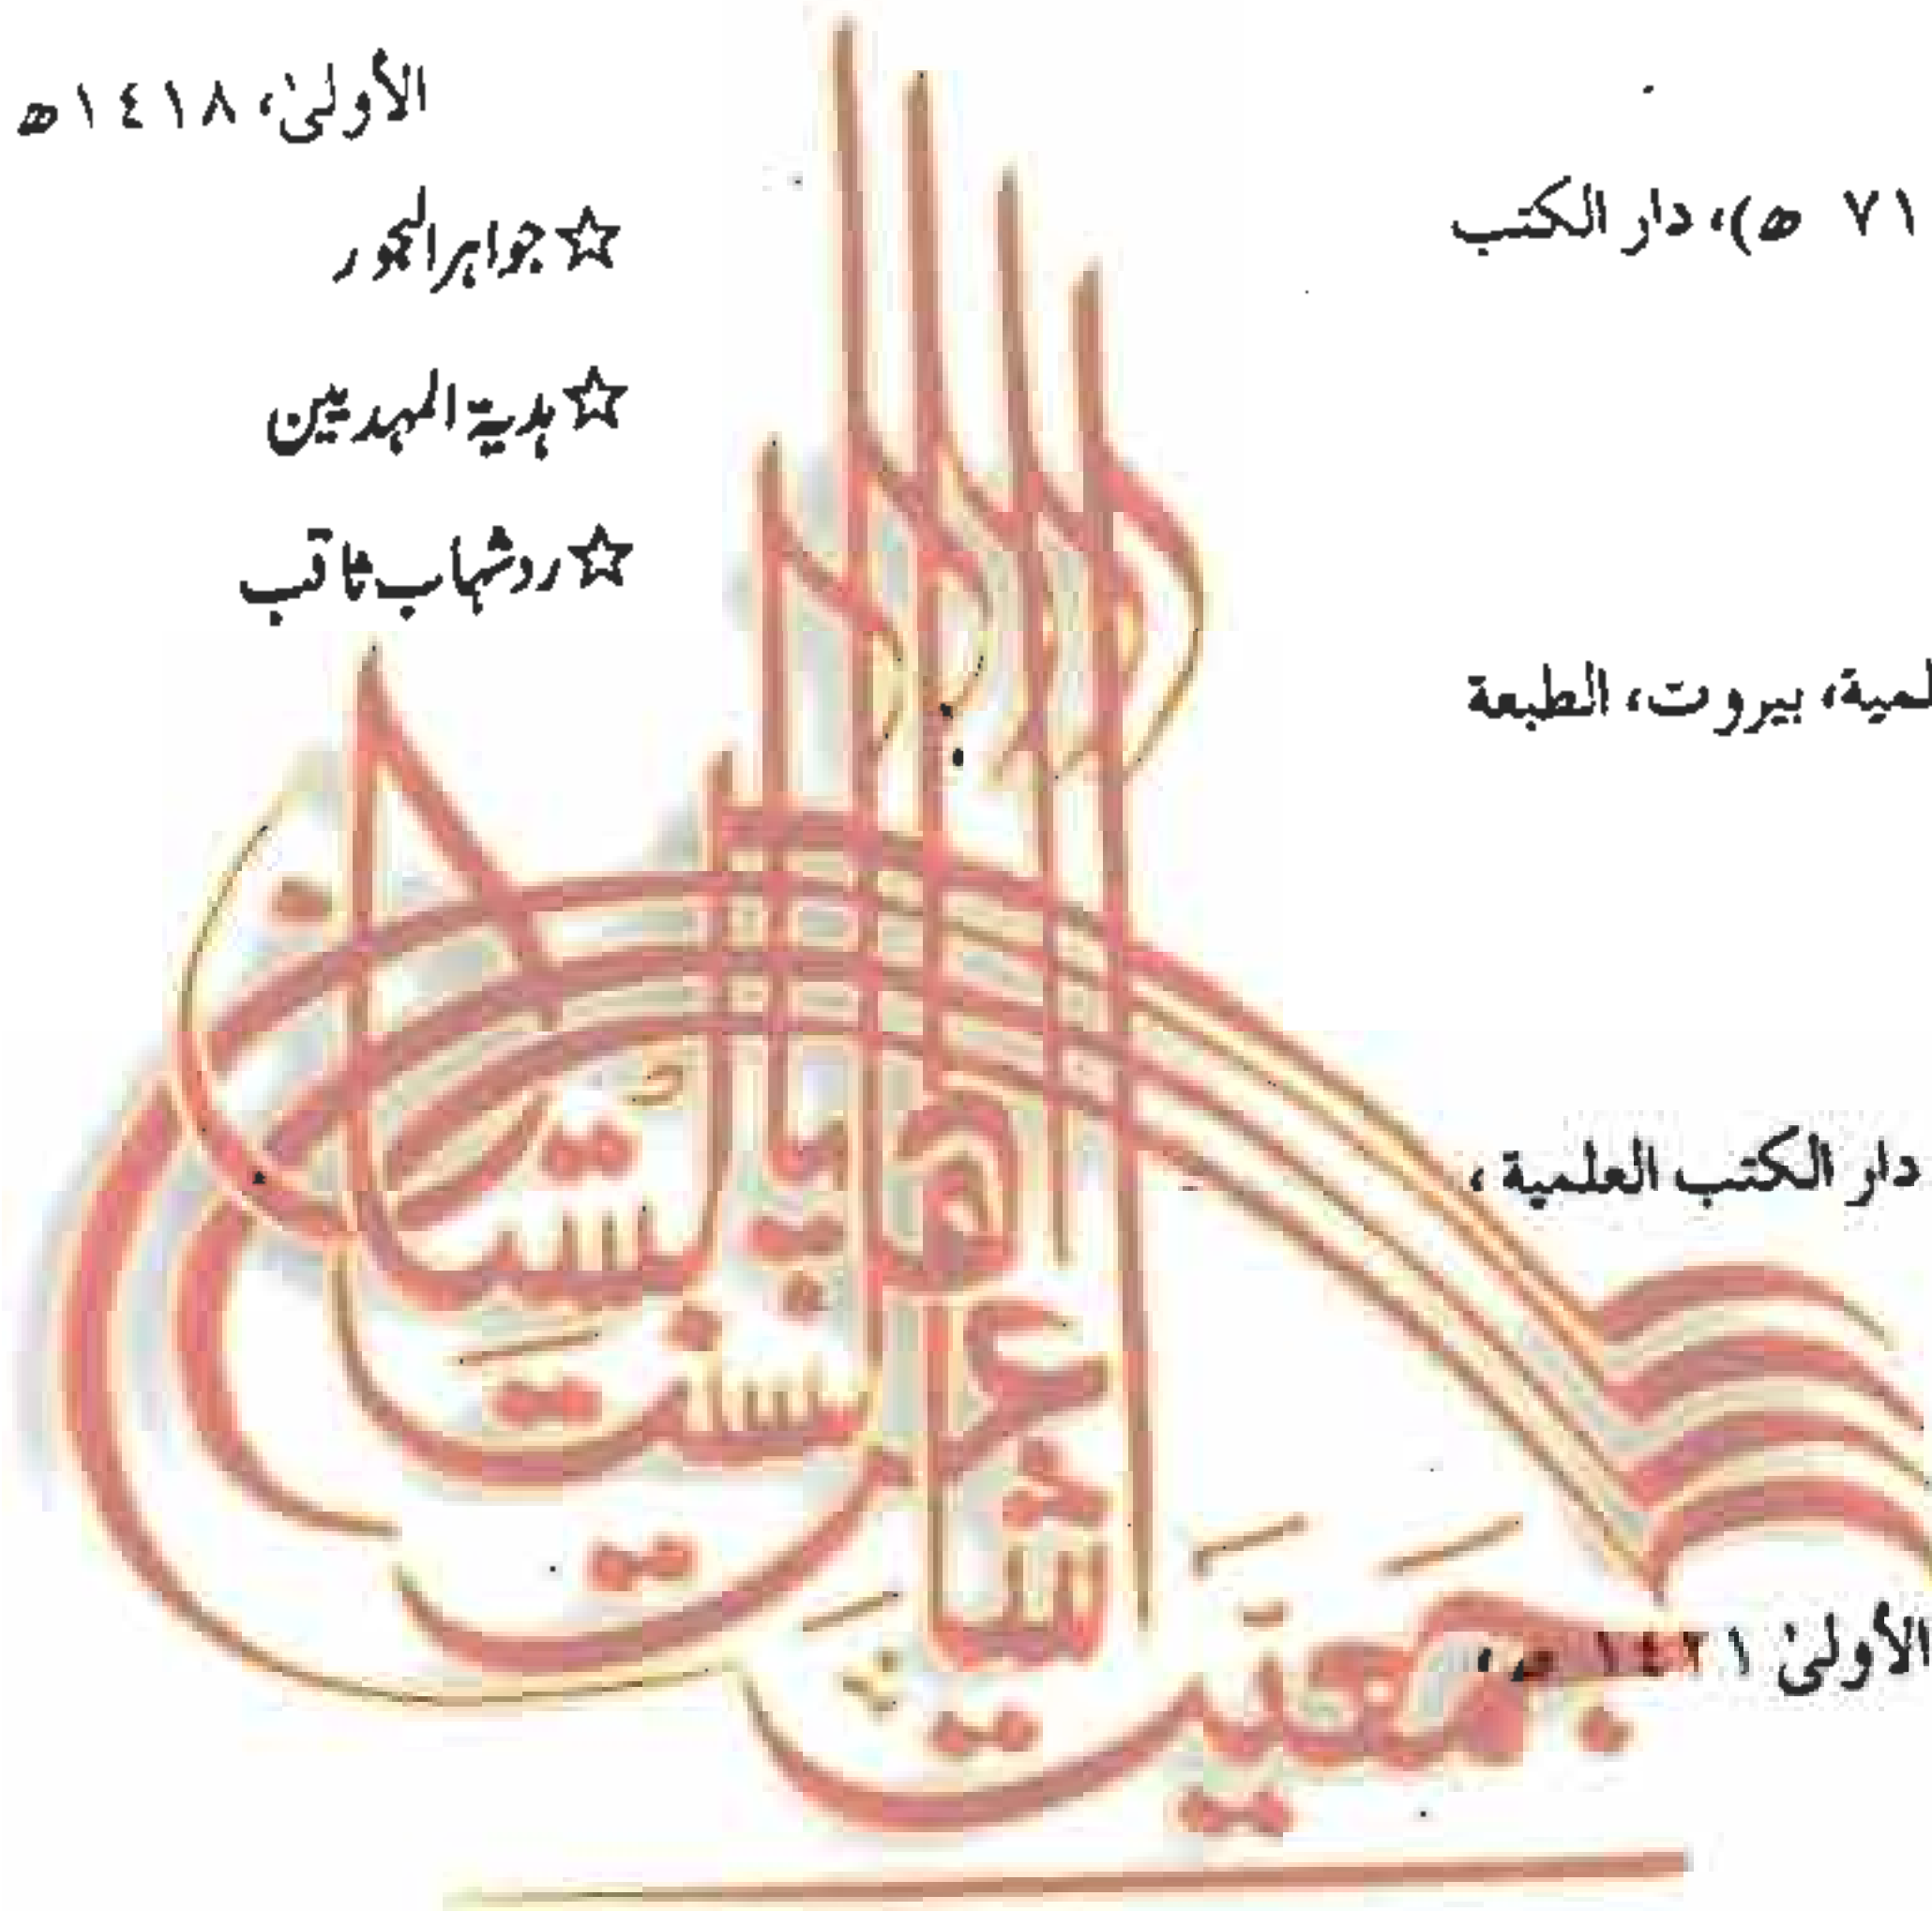 ٧١ ه)، دار الكتب
لمية، بيروت، الطبعة
دار الكتب العلمية ،
الأولىٰ ١٤٢١ ه،
الأولىٰ، ١٤١٨ه
☆ جواہر البحور
☆ ہدیۃ المہدیین
☆ رد شہاب ثاقب
جمعیت
اہلسنت